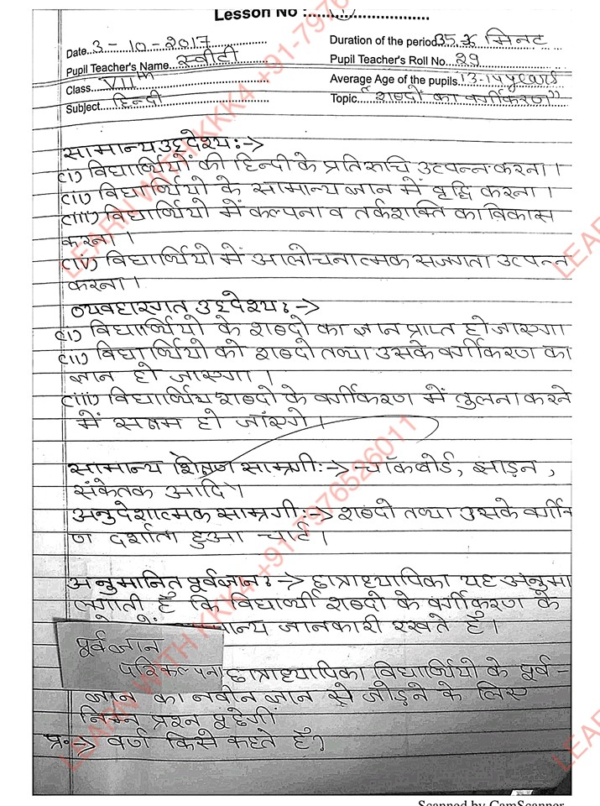 Lesson No :
Date 3-10-2017
Duration of the period 35 मिनट
Pupil Teacher's Name स्वीटी
Pupil Teacher's Roll No. 29
Class VIIth
Average Age of the pupils 13-14 years
Subject हिन्दी
Topic "शब्दों का वर्गीकरण"
सामान्य उद्देश्य :->
(i) विद्यार्थियों की हिन्दी के प्रति रुचि उत्पन्न करना ।
(ii) विद्यार्थियो के सामान्य ज्ञान में वृद्धि करना ।
(iii) विद्यार्थियो में कल्पना व तर्कशक्ति का विकास
करना ।
(iv) विद्यार्थियो में आलोचनात्मक सजगता उत्पन्न
करना ।
व्यवहारगत उद्देश्य :->
(i) विद्यार्थियो के शब्दो का ज्ञान प्राप्त हो जाएगा
(ii) विद्यार्थियो को शब्दो तथा उसके वर्गीकरण का
ज्ञान हो जाएगा ।
(iii) विद्यार्थिय शब्दो के वर्गीकरण में तुलना करने
में सक्षम हो जाँएगे ।
सामान्य शिक्षण सामग्री :-> चॉकबोर्ड, झाड़न ,
संकेतक आदि ।
अनुदेशात्मक सामग्री :-> शब्दो तथा उसके वर्गीक
ण दर्शाता हुआ चार्ट ।
अनुमानित पूर्वज्ञान :-> छात्राध्यापिका यह अनुमा
लगाती है कि विद्यार्थी शब्दो के वर्गीकरण के
मान्य जानकारी रखते है ।
पूर्वज्ञान
परिकल्पना छात्राध्यापिका विद्यार्थियो के पूर्व -
ज्ञान का नवीन ज्ञान से जोड़ने के लिए
निम्न प्रश्न पूछेगी
प्र. :-> वर्ण किसे कहते है?
LEARN WITH KKK4 +91-7976526011
Scanned by CamScanner